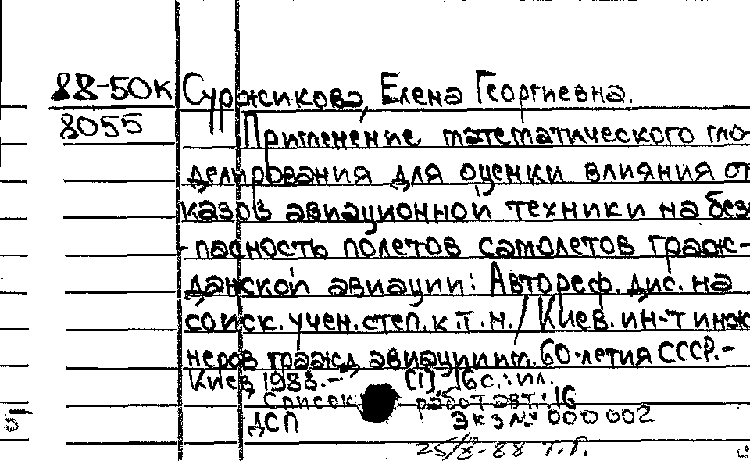 88-50К Суражикова, Елена Георгиевна.
8055 Применение математического мо-
делирования для оценки влияния от
казов авиационной техники на безо
-пасность полетов самолетов граж-
данской авиации: Автореф. дис. на
соиск. учен. степ. к.т.н. / Киев. ин-т инже
неров гражд. авиации им. 60-летия СССР.-
Киев, 1988.- [1], 16 с.: ил.
Список работ авт.: 16
ДСП Экз № 000002
25/8-88 Т.Г.